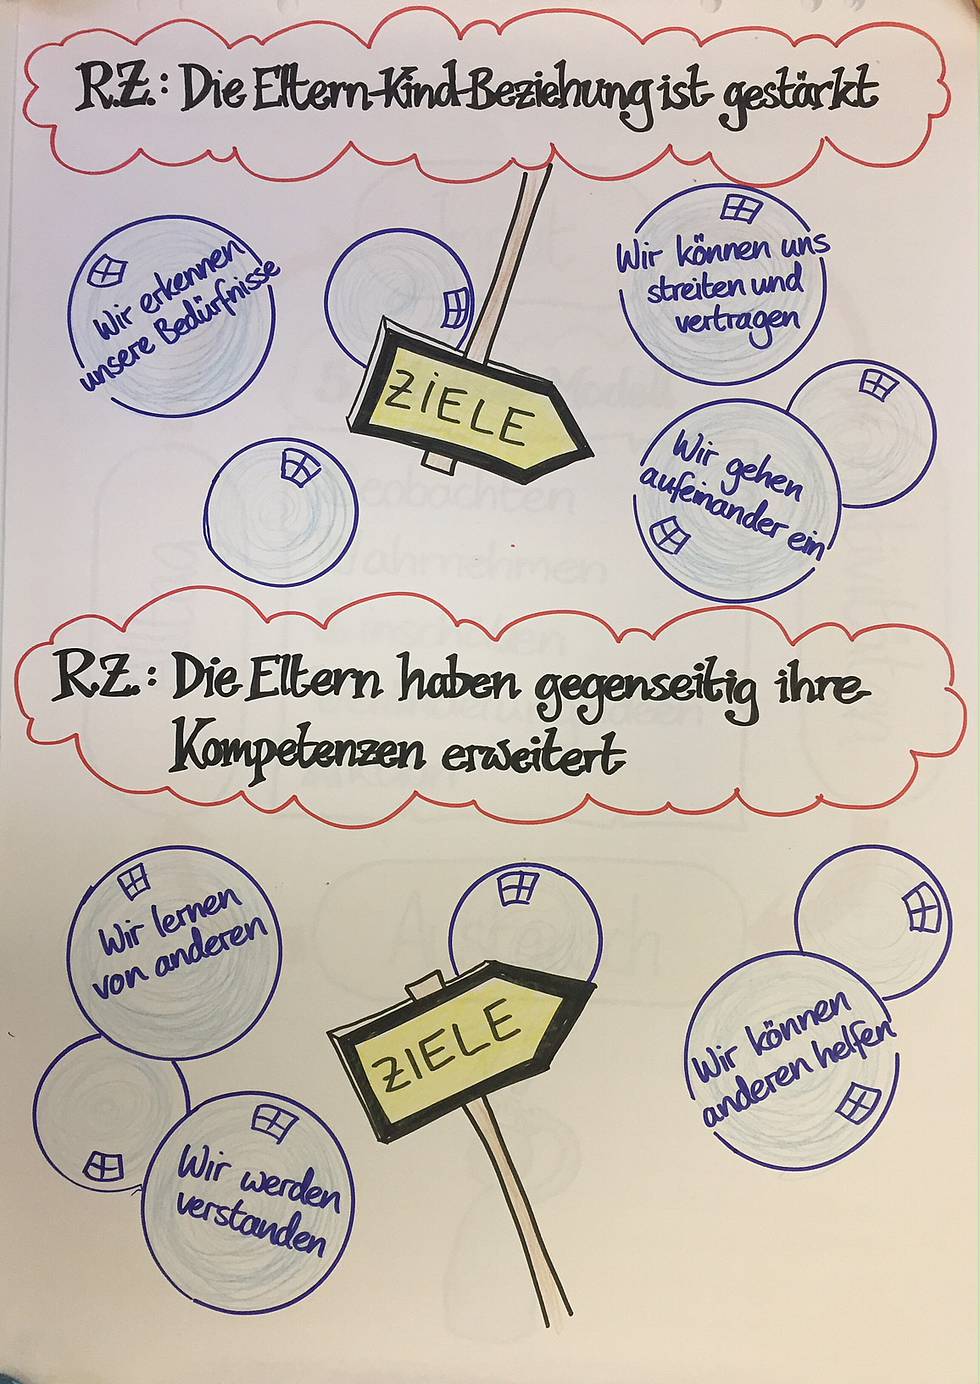 R.Z.: Die Eltern-Kind-Beziehung ist gestärkt
Wir erkennen
unsere Bedürfnisse
Wir können uns
streiten und
vertragen
ZIELE
Wir gehen
aufeinander ein
R.Z.: Die Eltern haben gegenseitig ihre
Kompetenzen erweitert
Wir lernen
von anderen
ZIELE
Wir können
anderen helfen
Wir werden
verstanden